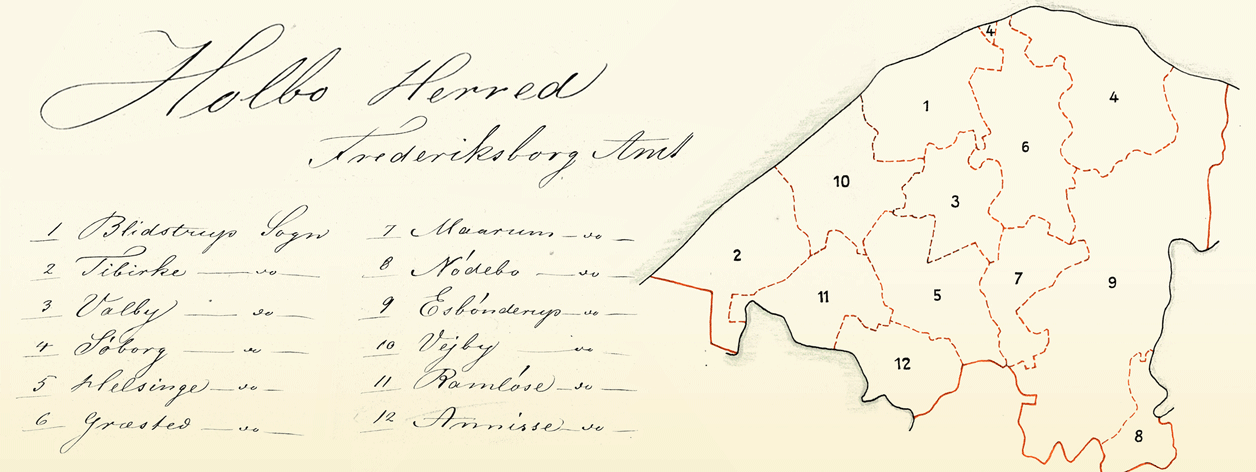 Holbo Herred
Frederiksborg Amt
1 Blidstrup Sogn
2 Tibirke — do —
3 Valby — do —
4 Söborg — do —
5 Helsinge — do —
6 Græsted — do —
7 Maarum — do —
8 Nódebo — do —
9 Esbónderup — do —
10 Vejby — do —
11 Ramlóse — do —
12 Annisse — do —
4
4
1
6
10
3
2
7
9
11
5
12
8